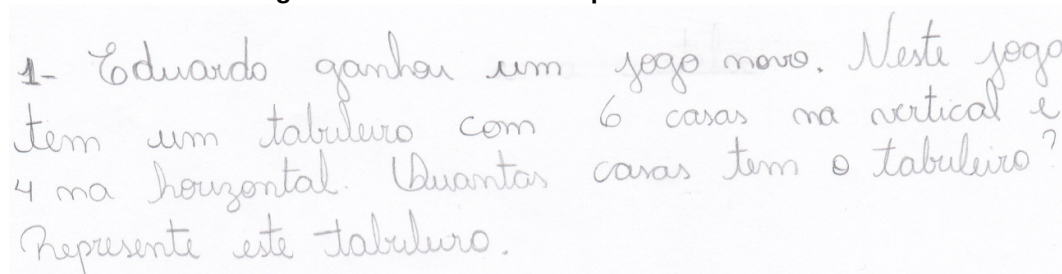 1- Eduardo ganhou um jogo novo. Neste jogo
tem um tabuleiro com 6 casas na vertical e
4 na horizontal. Quantas casas tem o tabuleiro?
Represente este tabuleiro.